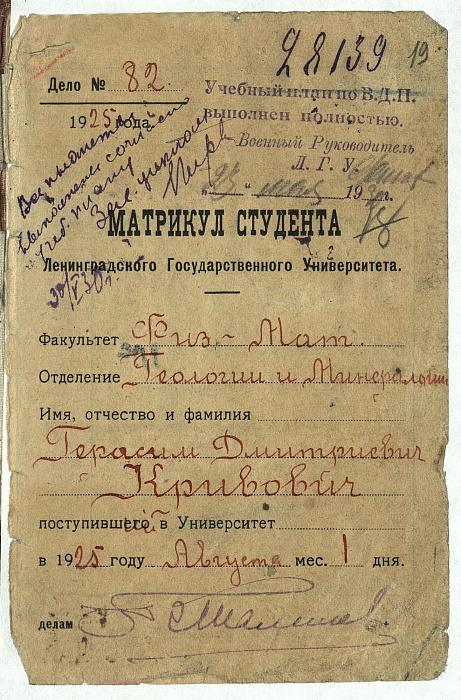 28139 19
Дело № 82.
1925 года
Учебный план по В.Д.П.
выполнен полностью.
Военный Руководитель
Л. Г. У.
"23" мая 1930 г.
Все
учеб. плану
30/VI 30 г.
МАТРИКУЛ СТУДЕНТА
Ленинградского Государственного Университета.
Факультет Физ.-Мат.
Отделение Геологии и Минералогии
Имя, отчество и фамилия
Герасим Дмитриевич
Кривович
поступившего в Университет
ий
в 1925 году Августа мес. 1 дня.
делам